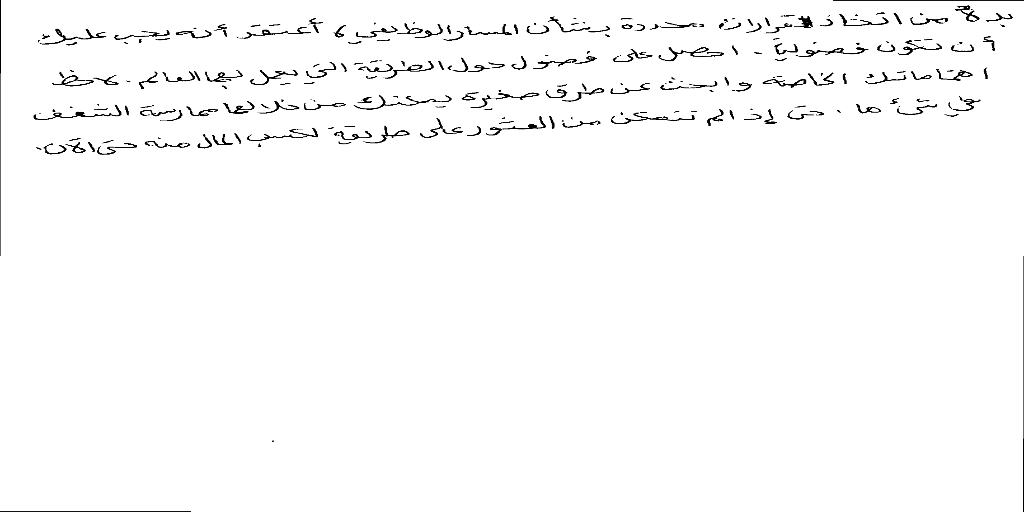 بدلاً من اتخاذ قرارات محددة بشأن المسار الوظيفي، أعتقد أنه يجب عليك
أن تكون فضولياً. احصل على فضول حول الطريقة التي يعمل بها العالم. لاحظ
اهتماماتك الخاصة وابحث عن طرق صغيرة يمكنك من خلالها ممارسة الشغف
في شيء ما. حتى إذا لم تتمكن من العثور على طريقة لكسب المال منه حتى الآن.